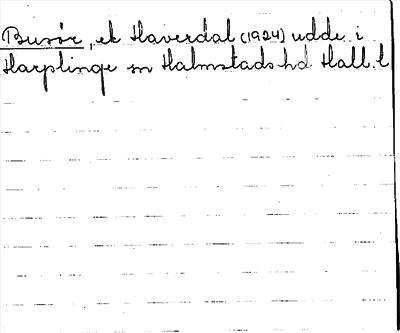 Busör, ek Haverdal (1924) udde i
Harplinge sn Halmstads hd Hall. l